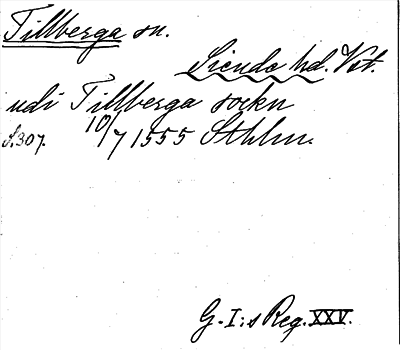 Tillberga sn.
Siende hd. Vst.
udi Tillberga sockn
S.307. 10/7 1555 Sthlm.
G. I:s Reg. XXV.